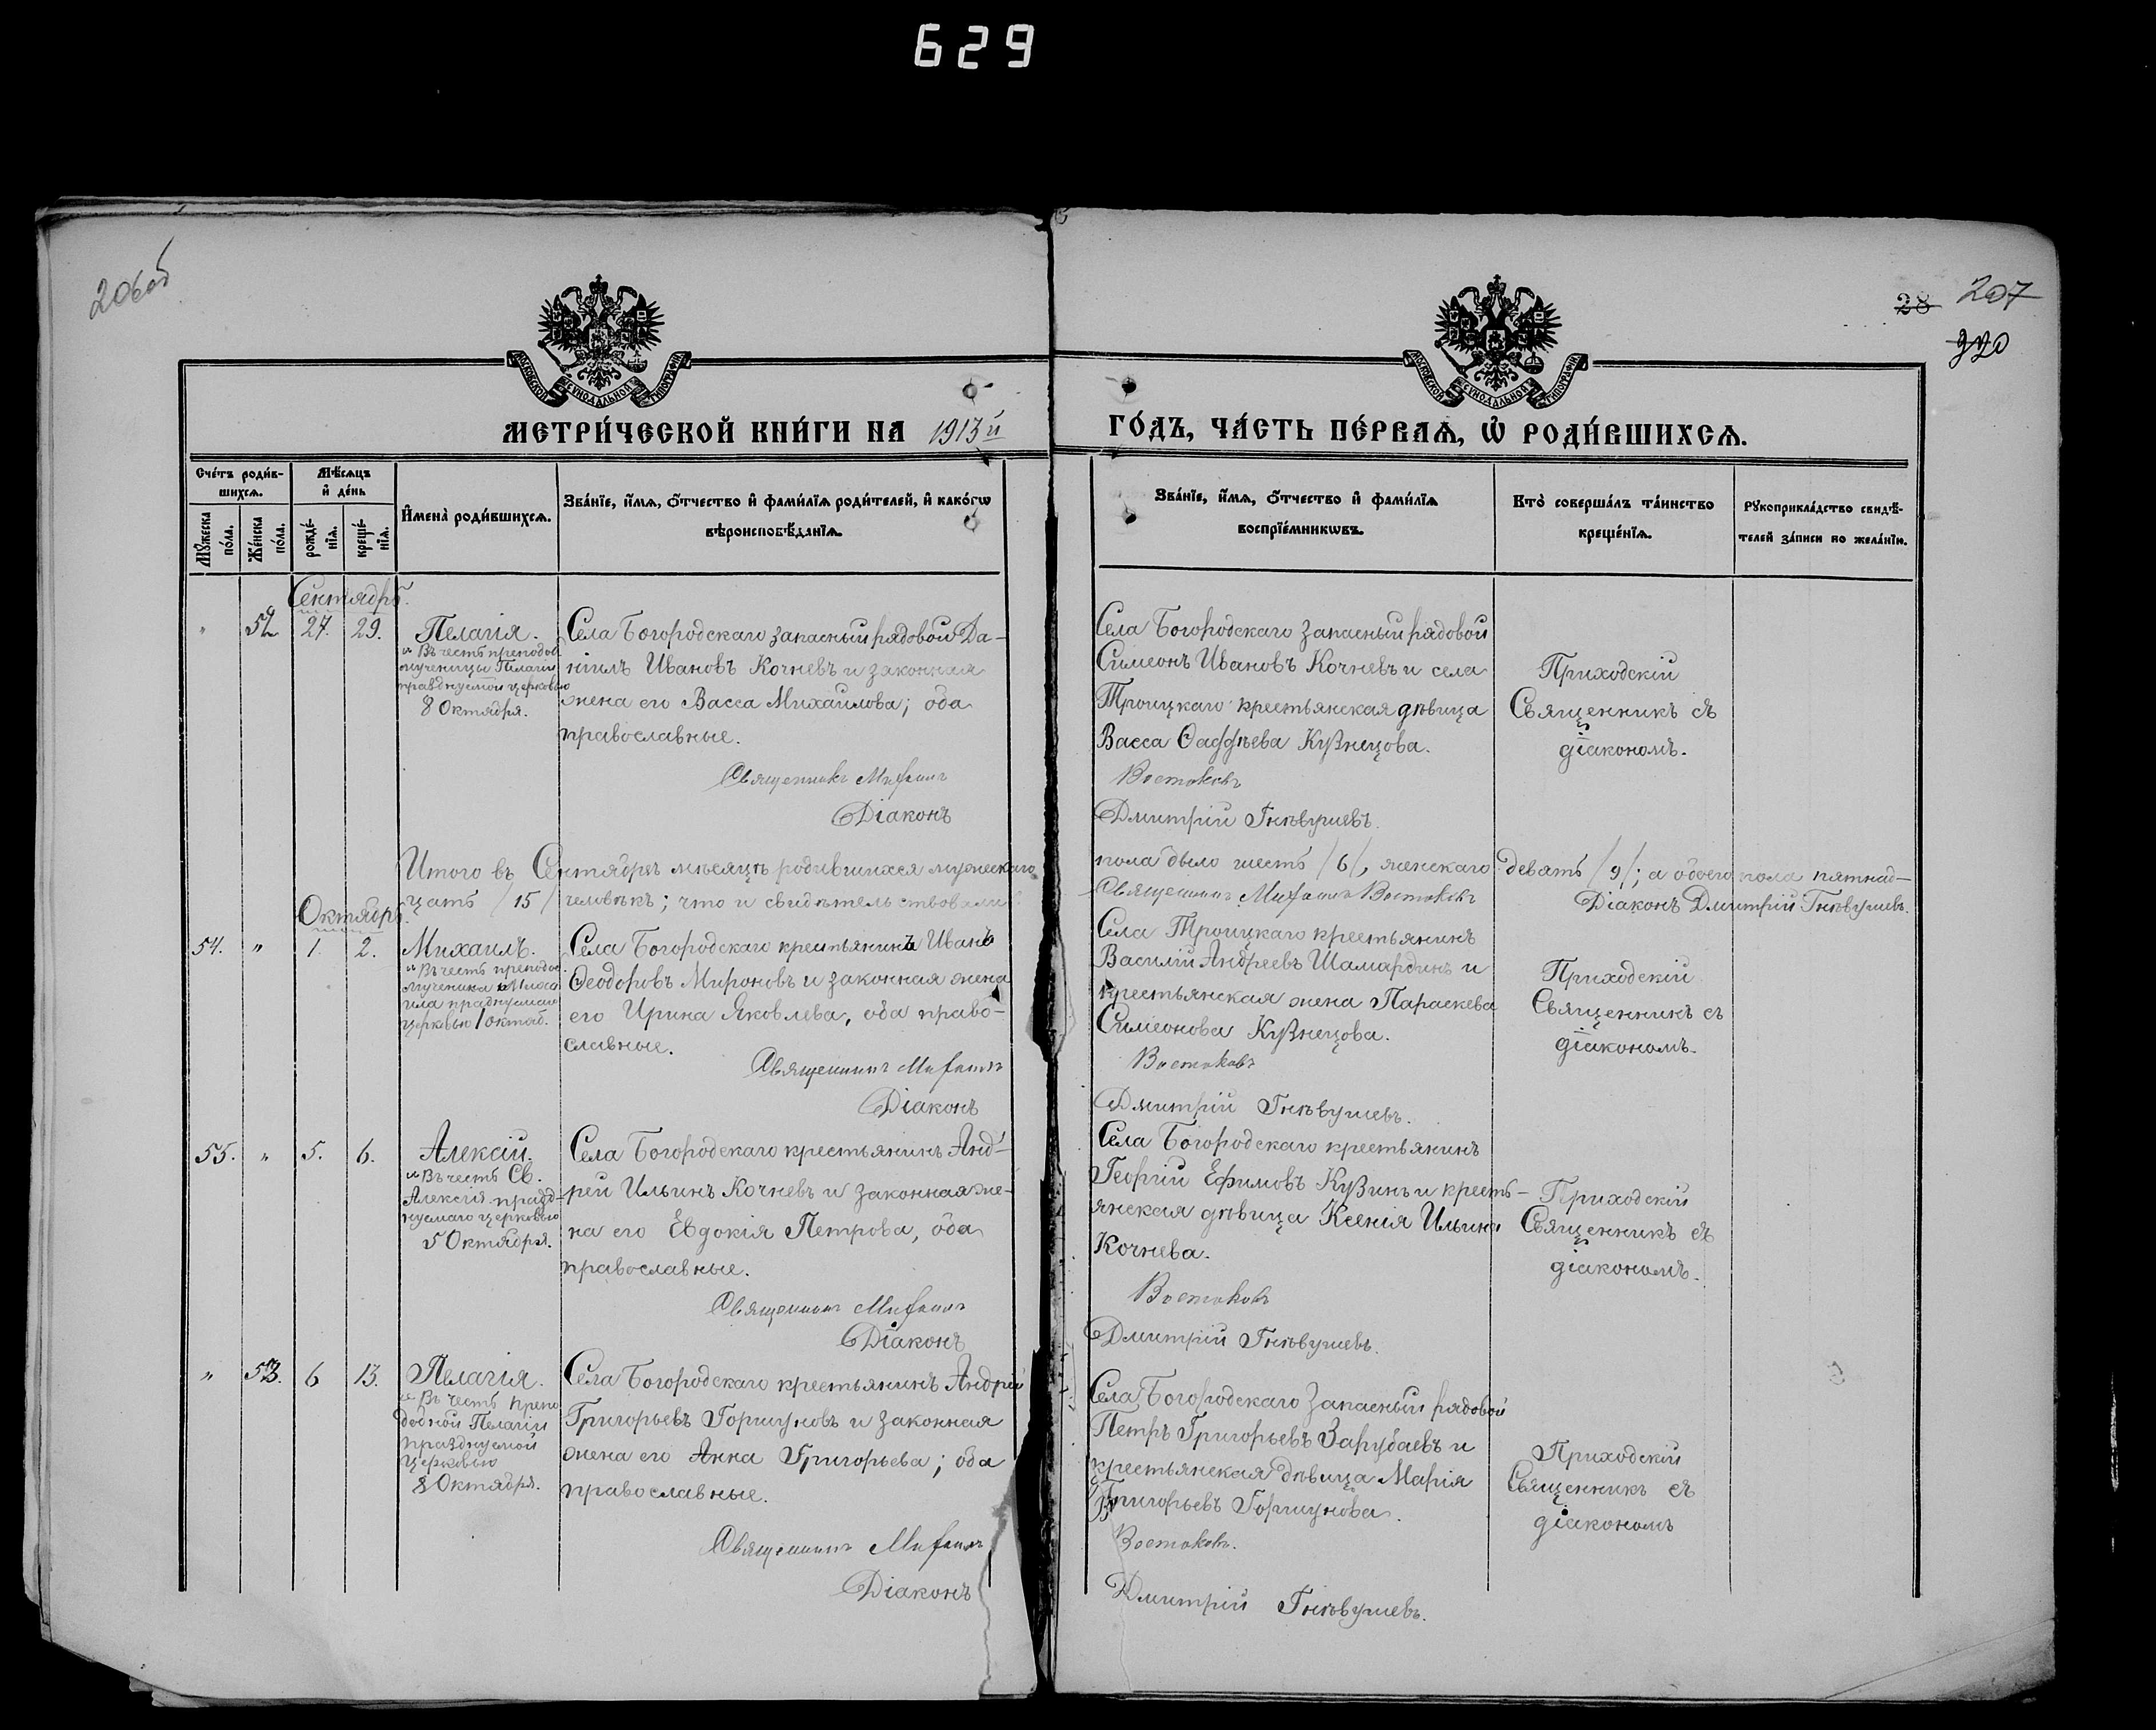 629
206об
28 207
320
МОСКОВСКОЙ СѴНОДАЛЬНОЙ ТИПОГРАФІИ
МОСКОВСКОЙ СѴНОДАЛЬНОЙ ТИПОГРАФІИ
МЕТРИ́ЧЕСКОЙ КНИ́ГИ НА 1913й
ГО́ДЪ, ЧА́СТЬ ПЕ́РВАѦ, Ѡ҆ РОДИ́ВШИХСѦ.
Сче́тъ роди́в-
шихсѧ.
Мѣ́сѧцъ
и҆ де́нь
Мꙋ́жеска по́ла.
Же́нска по́ла.
рожде́-
нїѧ.
креще́-
нїѧ.
И҆мена̀ роди́вшихсѧ.
Зва́нїе, и҆́мѧ, ѻ҆́тчество и҆ фами́лїѧ роди́телей, и҆ како́гѡ
вѣроисповѣ́данїѧ.
Зва́нїе, и҆́мѧ, ѻ҆́тчество и҆ фами́лїѧ
воспрїе́мникѡвъ.
Кто̀ соверша́лъ та́инство
креще́нїѧ.
Рꙋкоприкла́дство свидѣ́-
телей за́писи по жела́нїю.
Сентябрь.
" 52 27. 29.
Пелагія.
"Въ честь преподоб
мученицы Пелагіи
празднуемой церковью
8 Октября.
Села Богородскаго запасный рядовой Да-
ніилъ Ивановъ Кочневъ и законная
жена его Васса Михайлова; оба
православные.
Священникъ Митрофанъ
Діаконъ
Села Богородскаго запасный рядовой
Симеонъ Ивановъ Кочневъ и села
Троицкаго крестьянская дѣвица
Васса Ѳаддѣева Кузнецова.
Востоковъ
Дмитрій Гнѣвушевъ.
Приходскій
Священникъ съ
діакономъ.
Итого въ Сентябрѣ мѣсяцѣ родившихся мужескаго
пола было шесть /6/, женскаго девять /9/; а обоего пола пятнад-
цать /15/ человѣкъ; что и свидѣтельствовали
Священникъ Востоковъ Діаконъ Дмитрій Гнѣвушевъ.
Октябрь.
54. " 1. 2.
Михаилъ.
"Въ честь преподоб.
мученика
празднуемаго
церковью 1 октяб.
Села Богородскаго крестьянинъ Иванъ
Ѳеодоровъ Мироновъ и законная жена
его Ирина Яковлева, оба право-
славные.
Священникъ
Діаконъ
Села Троицкаго крестьянинъ
Василій Андреевъ Шамардинъ и
крестьянская жена Параскева
Симеонова Кузнецова.
Востоковъ
Дмитрій Гнѣвушевъ.
Приходскій
Священникъ съ
діакономъ.
55. " 5. 6.
Алексій.
"Въ честь Св.
Алексія празд-
нуемаго церковью
5 Октября.
Села Богородскаго крестьянинъ Анд-
рей Ильинъ Кочневъ и законная же-
на его Евдокія Петрова, оба
православные.
Священникъ
Діаконъ
Села Богородскаго крестьянинъ
Георгій Ефимовъ Кузинъ и кресть-
янская дѣвица Ксенія Ильина
Кочнева.
Востоковъ
Дмитрій Гнѣвушевъ.
Приходскій
Священникъ съ
діакономъ.
" 53. 6 13.
Пелагія.
"Въ честь препо
добной Пелагіи
празднуемой
церковью
8 Октября.
Села Богородскаго крестьянинъ Андрей
Григорьевъ Горшуновъ и законная
жена его Анна Григорьева; оба
православные.
Священникъ
Діаконъ
Села Богородскаго запасный рядовой
Петръ Григорьевъ Зарубаевъ и
крестьянская дѣвица Марія
Григорьевъ Горшунова.
Востоковъ.
Дмитрій Гнѣвушевъ.
Приходскій
Священникъ съ
діакономъ